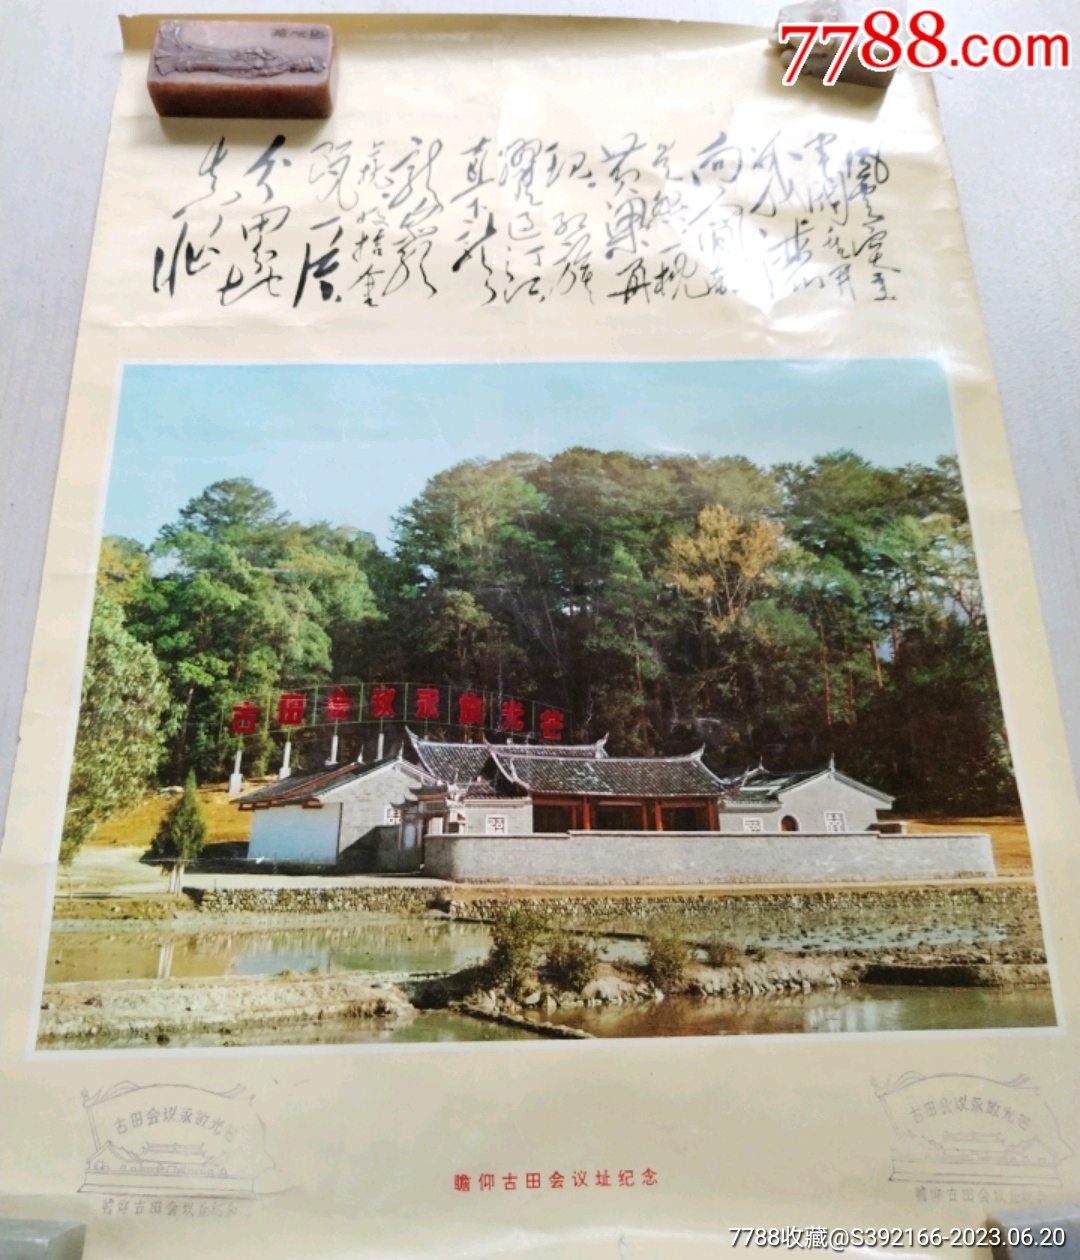 7788.com
风云突变
军阀重开战
洒向人间都是怨
一枕黄粱再现
红旗跃过汀江
直下龙岩上杭
收拾金瓯一片
分田分地真忙
古田会议永放光芒
古田会议永放光芒
瞻仰古田会议址纪念
古田会议永放光芒
瞻仰古田会议址纪念
瞻仰古田会议址纪念
7788收藏@S392166-2023.06.20